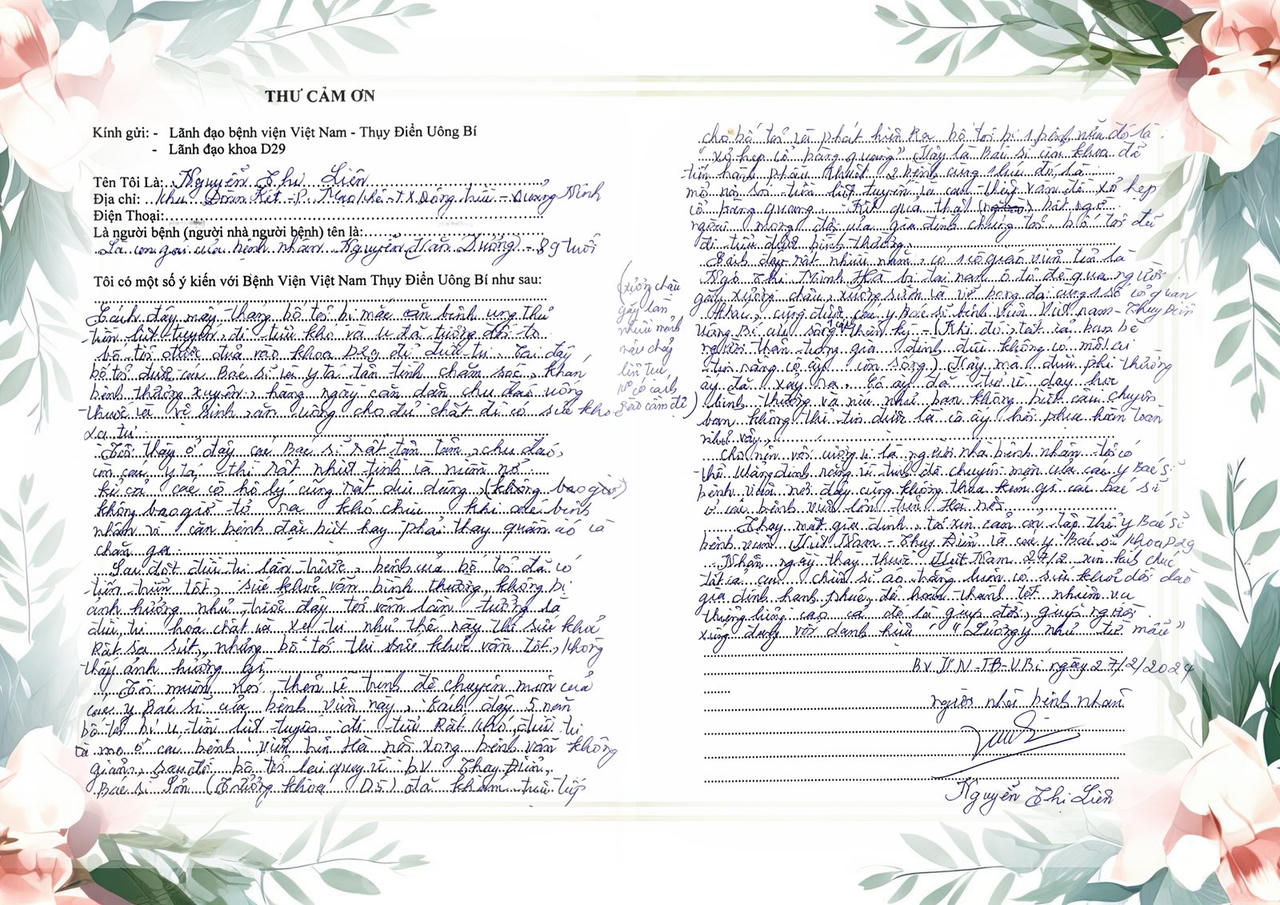 THƯ CẢM ƠN
Kính gửi: - Lãnh đạo bệnh viện Việt Nam - Thụy Điển Uông Bí
- Lãnh đạo khoa D29
Tên Tôi Là: Nguyễn Thị Liên
Địa chỉ: Khu Đoàn Kết - P. Mạo Khê - T.X Đông Triều - Quảng Ninh
Điện Thoại:
Là người bệnh (người nhà người bệnh) tên là:
Là con gái của bệnh nhân Nguyễn Văn Dưỡng - 89 tuổi
Tôi có một số ý kiến với Bệnh Viện Việt Nam Thụy Điển Uông Bí như sau:
Cách đây mấy tháng bố tôi bị mắc căn bệnh ung thư
tiền liệt tuyến, đi tiểu khó và u đã tương đối to
bố tôi được đưa vào khoa D29 để điều trị. Tại đây
bố tôi được các Bác sĩ và y tá tận tình chăm sóc, khám
bệnh thường xuyên, hàng ngày căn dặn chu đáo uống
thuốc và vệ sinh, ăn uống cho đủ chất để có sức khỏe
xạ trị
Tôi thấy ở đây các Bác sĩ rất tận tâm, chu đáo,
còn các y tá - thì rất nhiệt tình và niềm nở
kể cả các cô hộ lý cũng rất dịu dàng (không bao giờ)
không bao giờ tỏ ra khó chịu khi các bệnh
nhân vì căn bệnh đặc biệt hay phải thay quần áo và
chăn ga.
Sau đợt điều trị lần trước, bệnh của bố tôi đã có
tiến triển tốt, sức khỏe vẫn bình thường, không bị
ảnh hưởng như trước đây tôi vẫn lầm tưởng là
điều trị hóa chất và xạ trị như thế này thì sức khỏe
Rất sa sút, nhưng bố tôi thì sức khỏe vẫn tốt, không
thấy ảnh hưởng gì
Tôi muốn nói thêm về trình độ chuyên môn của
các y Bác sĩ của bệnh viện này. Cách đây 5 năm
bố tôi bị u tiền liệt tuyến đi tiểu Rất khó, điều trị
và mổ ở các bệnh viện trên Hà nội xong bệnh vẫn không
giảm, sau đó bố tôi lại quay về b.v Thụy Điển,
Bác sĩ Sơn (Trưởng khoa D5) đã khám trực tiếp
cho bố tôi và phát hiện Ra bố tôi bị 1 bệnh nữa đó là
"xơ hẹp cổ bàng quang" Thế là Bác sĩ của khoa đã
tiến hành phẫu thuật 2 bệnh cùng 1 lúc đó là
mổ nội soi tiền liệt tuyến và can thiệp vấn đề xơ hẹp
cổ bàng quang. Kết quả thật bất ngờ
ngoài mong đợi của gia đình chúng tôi bố tôi đã
đi tiểu được bình thường.
Cách đây rất nhiều năm, có 1 cô giáo viên tên là
Ngô Thị Minh Hà bị tai nạn ô tô đè qua người
gãy xương chậu, xương sườn và vỡ bóng đái cùng 1 số cơ quan
khác, cũng được các y Bác sĩ bệnh viện Việt nam - Thụy Điển
Uông Bí cứu sống thần kỳ. (Khi đó, tất cả bạn bè
người thân trong gia đình đều không có một ai
tin rằng cô ấy còn sống). Thế mà điều phi thường
ấy đã xảy ra. Cô ấy đã trở về dạy học
bình thường và nếu như bạn không biết câu chuyện
bạn không thể tin được là cô ấy hồi phục hoàn toàn
như vậy.
(xương chậu
gãy làm
nhiều mảnh
máu chảy
liên tục
có cách
nào cầm để)
Cho nên với cương vị là người nhà bệnh nhân tôi có
thể khẳng định rằng về trình độ chuyên môn của các y Bác sĩ
bệnh viện nơi đây cũng không thua kém gì các bác sĩ
ở các bệnh viện lớn trên Hà nội.
Thay mặt gia đình, tôi xin cảm ơn tập thể y Bác sĩ
bệnh viện Việt Nam - Thụy Điển và các y Bác sĩ khoa D29
Nhân ngày thầy thuốc Việt Nam 27/2 xin kính chúc
tất cả các chiến sĩ áo trắng luôn có sức khỏe dồi dào
gia đình hạnh phúc, để hoàn thành tốt nhiệm vụ
thiêng liêng cao cả đó là giúp đời, giúp người
xứng đáng với danh hiệu "Lương y như từ mẫu"
B.V V.N-TĐ-U.Bí ngày 27/2/2024
người nhà bệnh nhân
Nguyễn Thị Liên